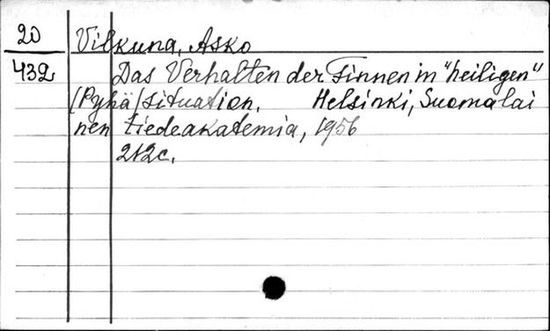 20 Vilkuna, Asko
432 Das Verhalten der Finnen in "heiligen"
(Pyhä) situation. Helsinki, Suomalai
nen tiedeakatemia, 1956
212c.